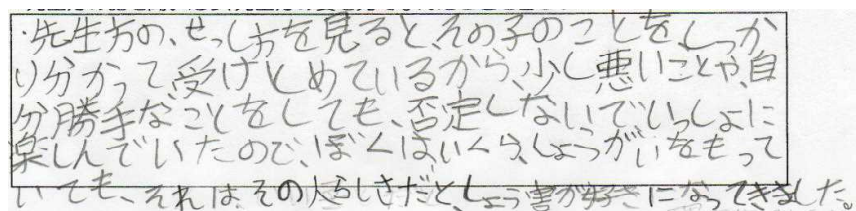 ・先生方の、せっし方を見ると、その子のことを、しっか
り分かって、受けとめているから、少し悪いことや、自
分勝手なことをしても、否定しないで、いっしょに
楽しんでいたので、ぼくは、いくら、しょうがいをもって
いても、それは、その人らしさだと、しょう害が好きになってきました。